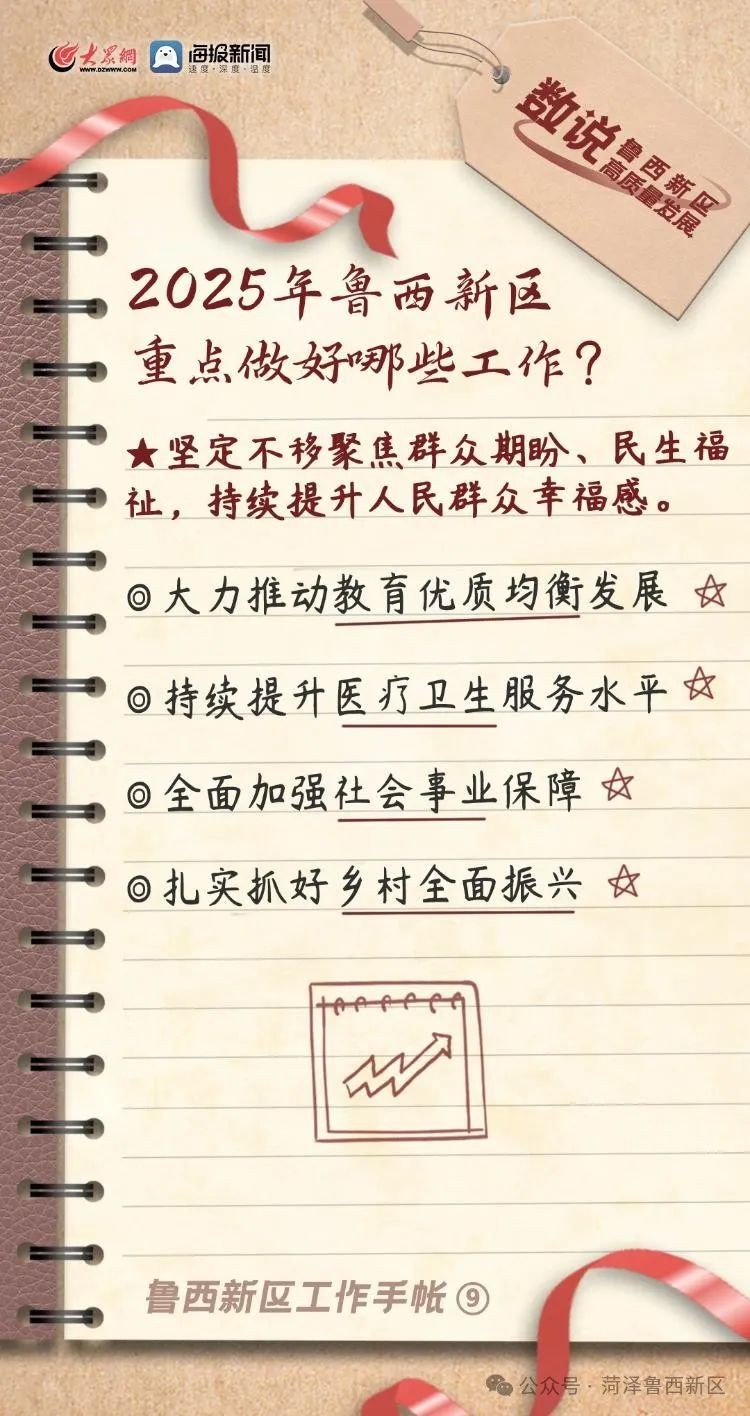 大众網
WWW.DZWWW.COM
海报新闻
速度·深度·温度
数说
鲁西新区
高质量发展
2025年鲁西新区
重点做好哪些工作？
★坚定不移聚焦群众期盼、民生福
祉，持续提升人民群众幸福感。
◎大力推动教育优质均衡发展
◎持续提升医疗卫生服务水平
◎全面加强社会事业保障
◎扎实抓好乡村全面振兴
鲁西新区工作手帐⑨
公众号·菏泽鲁西新区